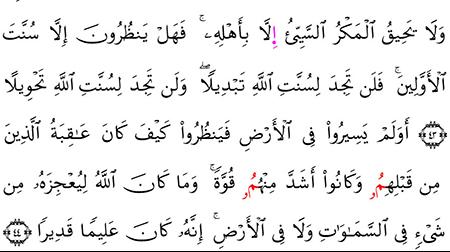 وَلَا يَحِيقُ ٱلْمَكْرُ ٱلسَّيِّئُ إِلَّا بِأَهْلِهِۦۚ فَهَلْ يَنظُرُونَ إِلَّا سُنَّتَ
ٱلْأَوَّلِينَۚ فَلَن تَجِدَ لِسُنَّتِ ٱللَّهِ تَبْدِيلًاۖ وَلَن تَجِدَ لِسُنَّتِ ٱللَّهِ تَحْوِيلًا
﴿٤٣﴾ أَوَلَمْ يَسِيرُوا۟ فِى ٱلْأَرْضِ فَيَنظُرُوا۟ كَيْفَ كَانَ عَـٰقِبَةُ ٱلَّذِينَ
مِن قَبْلِهِمُۥ وَكَانُوٓا۟ أَشَدَّ مِنْهُمُۥ قُوَّةًۚ وَمَا كَانَ ٱللَّهُ لِيُعْجِزَهُۥ مِن
شَىْءٍ فِى ٱلسَّمَـٰوَٰتِ وَلَا فِى ٱلْأَرْضِۚ إِنَّهُۥ كَانَ عَلِيمًا قَدِيرًا ﴿٤٤﴾